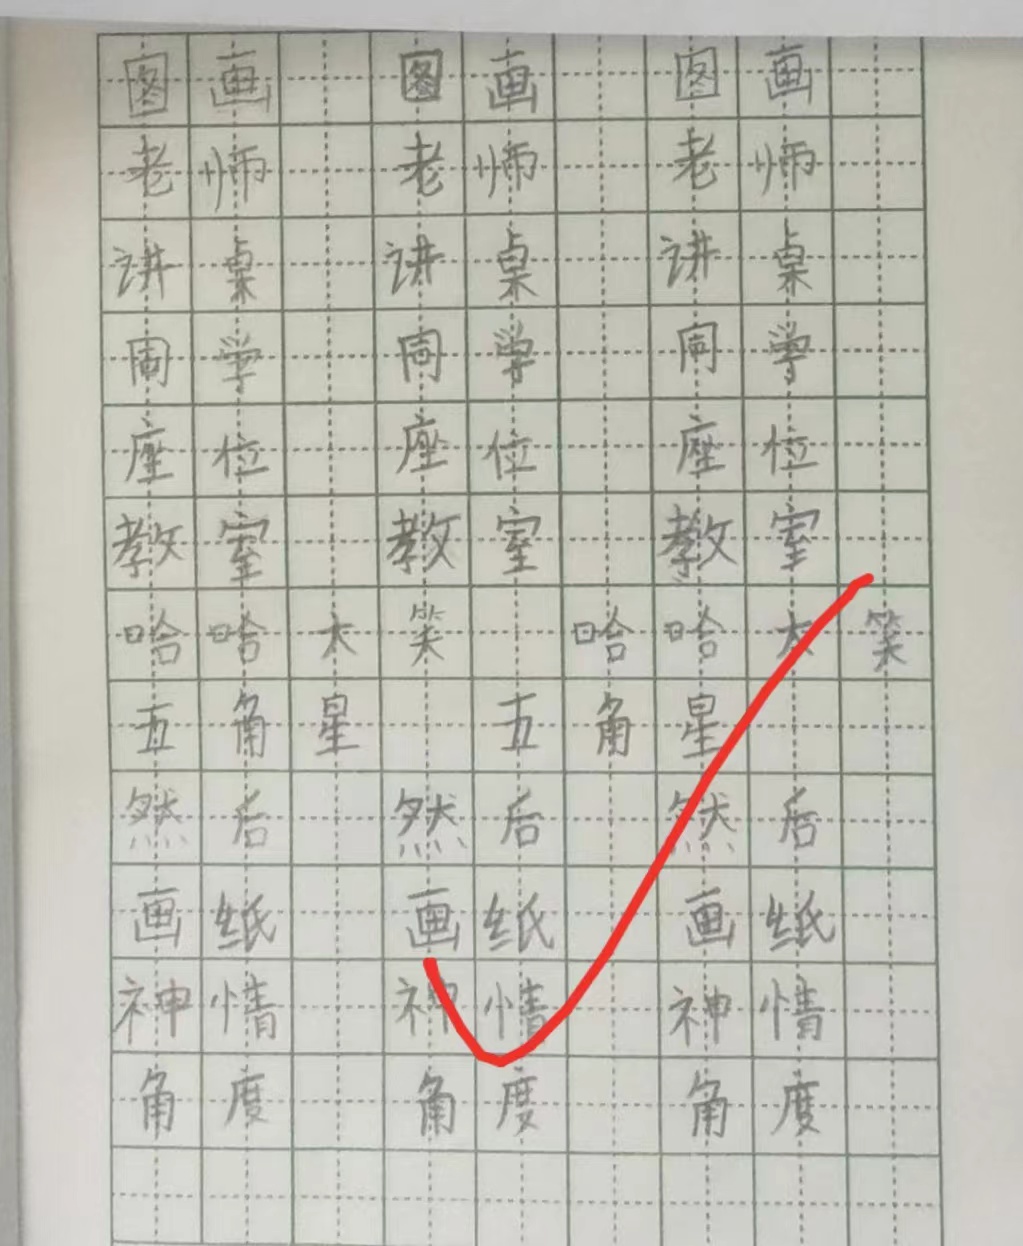 图画 图画 图画
老师 老师 老师
讲桌 讲桌 讲桌
同学 同学 同学
座位 座位 座位
教室 教室 教室
哈哈大笑 哈哈大笑
五角星 五角星
然后 然后 然后
画纸 画纸 画纸
神情 神情 神情
角度 角度 角度